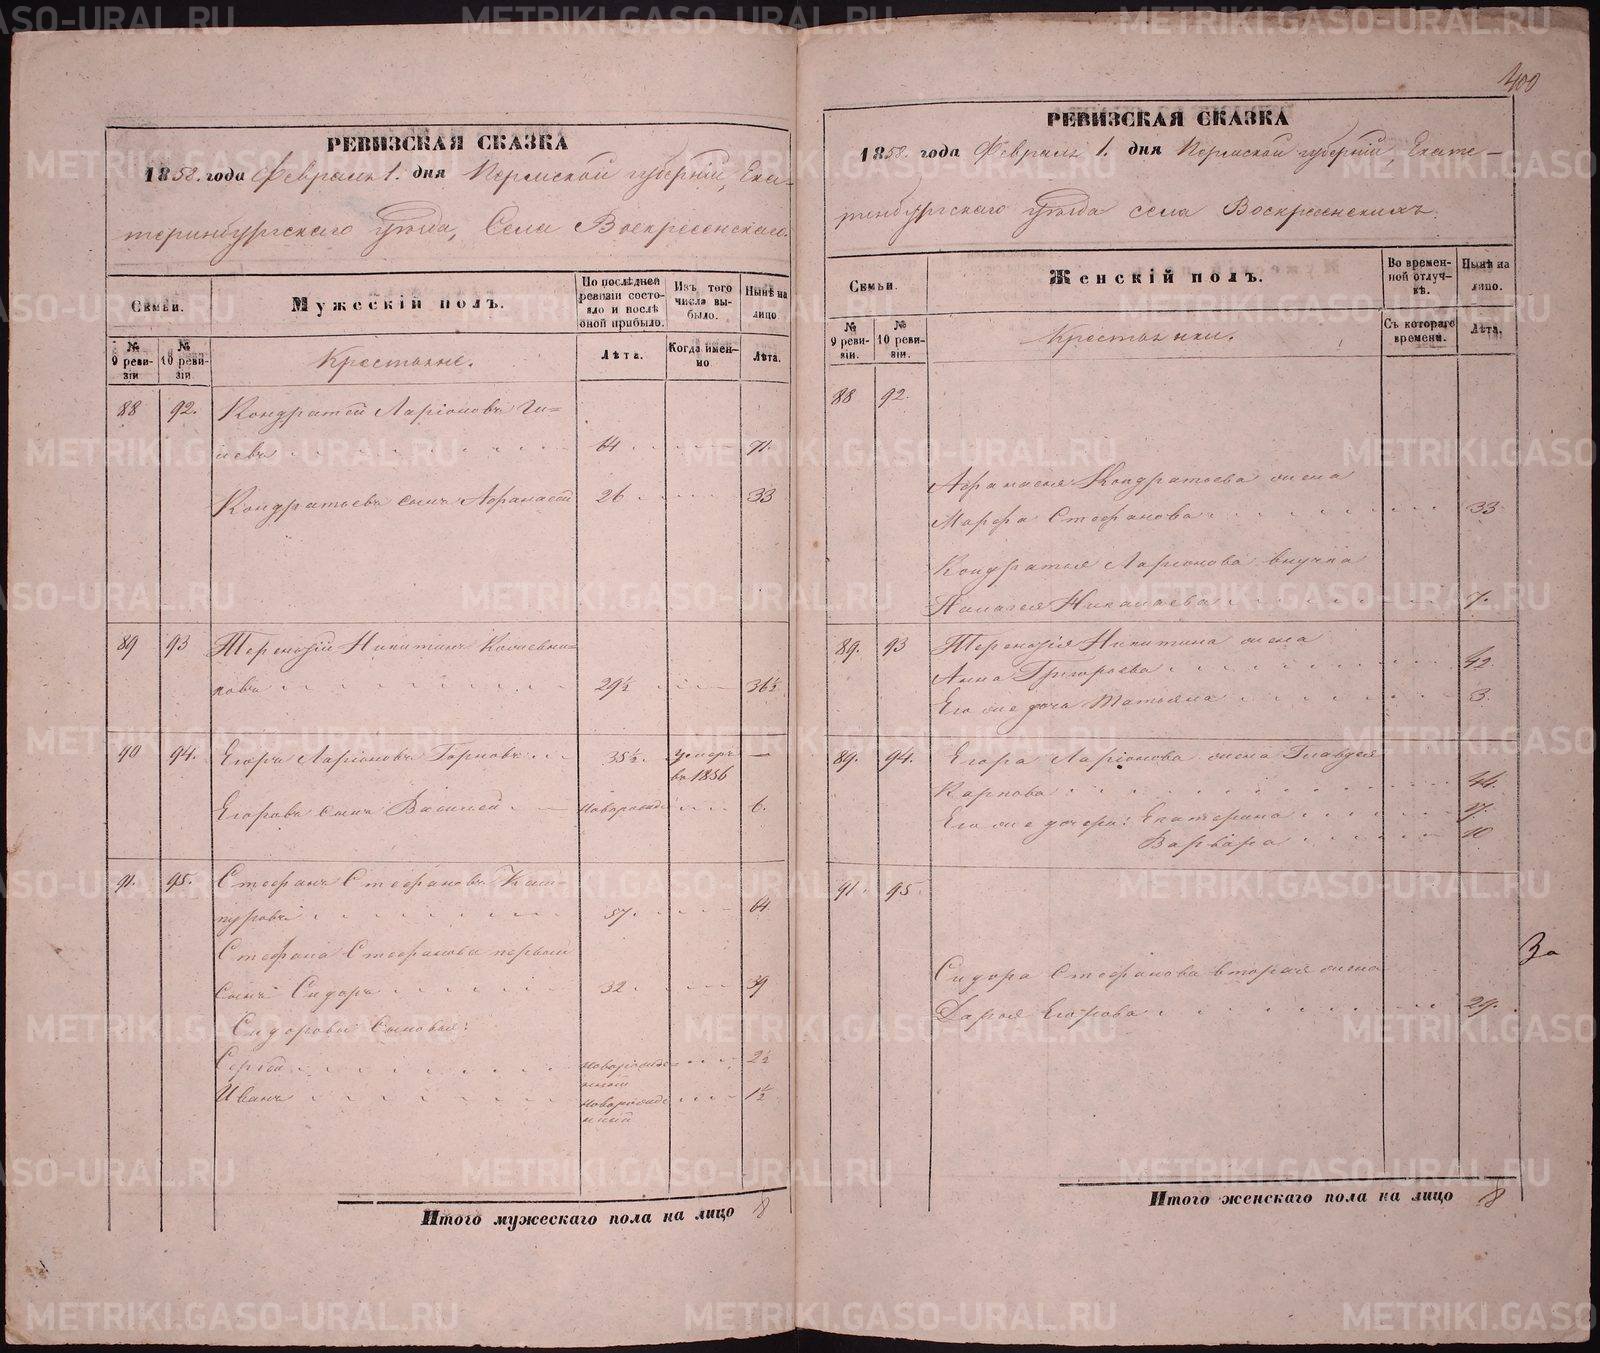 400
РЕВИЗСКАЯ СКАЗКА
1858. года Февраля 1. дня Пермской губерніи, Ека-
теринбургскаго уѣзда, Села Воскресенскаго.
Семьи.
Мужескій полъ.
По послѣдней ревизіи состояло и послѣ оной прибыло.
Изъ того числа выбыло.
Нынѣ на лицо
№ 9 ревизіи
№ 10 ревизіи
Крестьяне.
Лѣта.
Когда именно.
Лѣта.
88 92. Кондратей Ларіоновъ
64 71.
Кондратьевъ сынъ Афанасей 26 33
89 93 Терентій Никитинъ Кожевни-
ковъ 29½ 36½
90 94. Егоръ Ларіоновъ 35½. Умеръ въ 1856 —
Егоровъ сынъ Василей новорожд 6.
91. 95. Стефанъ Стефановъ Каш-
пуровъ 57. 64
Стефана Стефанова первой
сынъ Сидоръ 32. 39
Сидоровы Сыновья:
Сергѣй новорожденный 2½
Иванъ новорожденный 1½
Итого мужескаго пола на лицо 8
РЕВИЗСКАЯ СКАЗКА
1858. года Февраля 1. дня Пермской губерніи, Екате-
ринбургскаго уѣзда села Воскресенскихъ.
Семьи.
Женскій полъ.
Во временной отлучкѣ.
Нынѣ на лицо.
№ 9 ревизіи.
№ 10 ревизіи.
Крестьянки.
Съ котораго времени.
Лѣта.
88 92.
Афанасья Кондратьева жена
Марфа Стефанова 33
Кондратья Ларіонова внучка
Палагея Николаева 7.
89. 93 Терентія Никитина жена
Анна Григорьева 42
Его же дочь Татьяна 3
89. 94. Егора Ларіонова жена Клавдея
Карпова 44.
Его же дочери: Екатерина 17.
Варвара 10
91. 95.
Сидора Стефанова вторая жена
Дарья Егорова 29.
За
Итого женскаго пола на лицо 8
METRIKI.GASO-URAL.RU